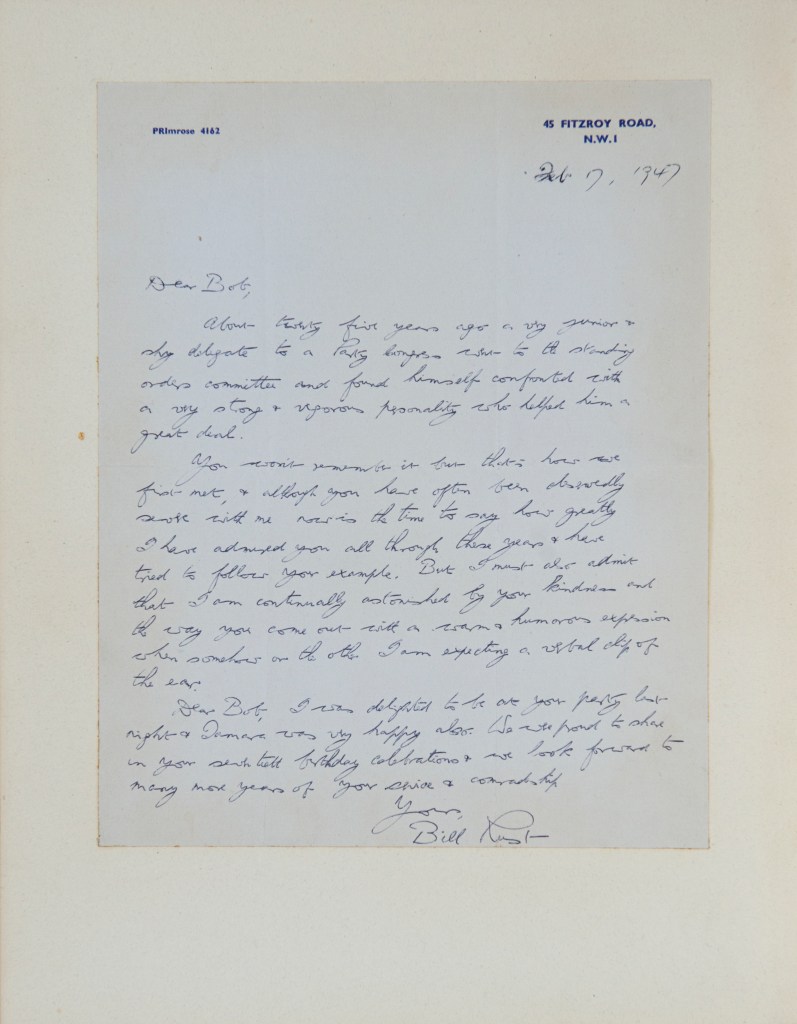 PRImrose 4162
45 FITZROY ROAD,
N.W.1
Feb 17, 1947
Dear Bob,
About twenty five years ago a very junior &
shy delegate to a Party Congress went to the standing
orders committee and found himself confronted with
a very strong & vigorous personality who helped him a
great deal.
You won't remember it but that's how we
first met, & although you have often been deservedly
severe with me now is the time to say how greatly
I have admired you all through these years & have
tried to follow your example. But I must also admit
that I am continually astonished by your kindness and
the way you come out with a warm & humorous expression
when somehow or the other I am expecting a verbal clip of
the ear.
Dear Bob, I was delighted to be at your party last
night & Tamara was very happy also. We were proud to share
in your seventieth birthday celebrations & we look forward to
many more years of your service & comradeship
Yours,
Bill Rust